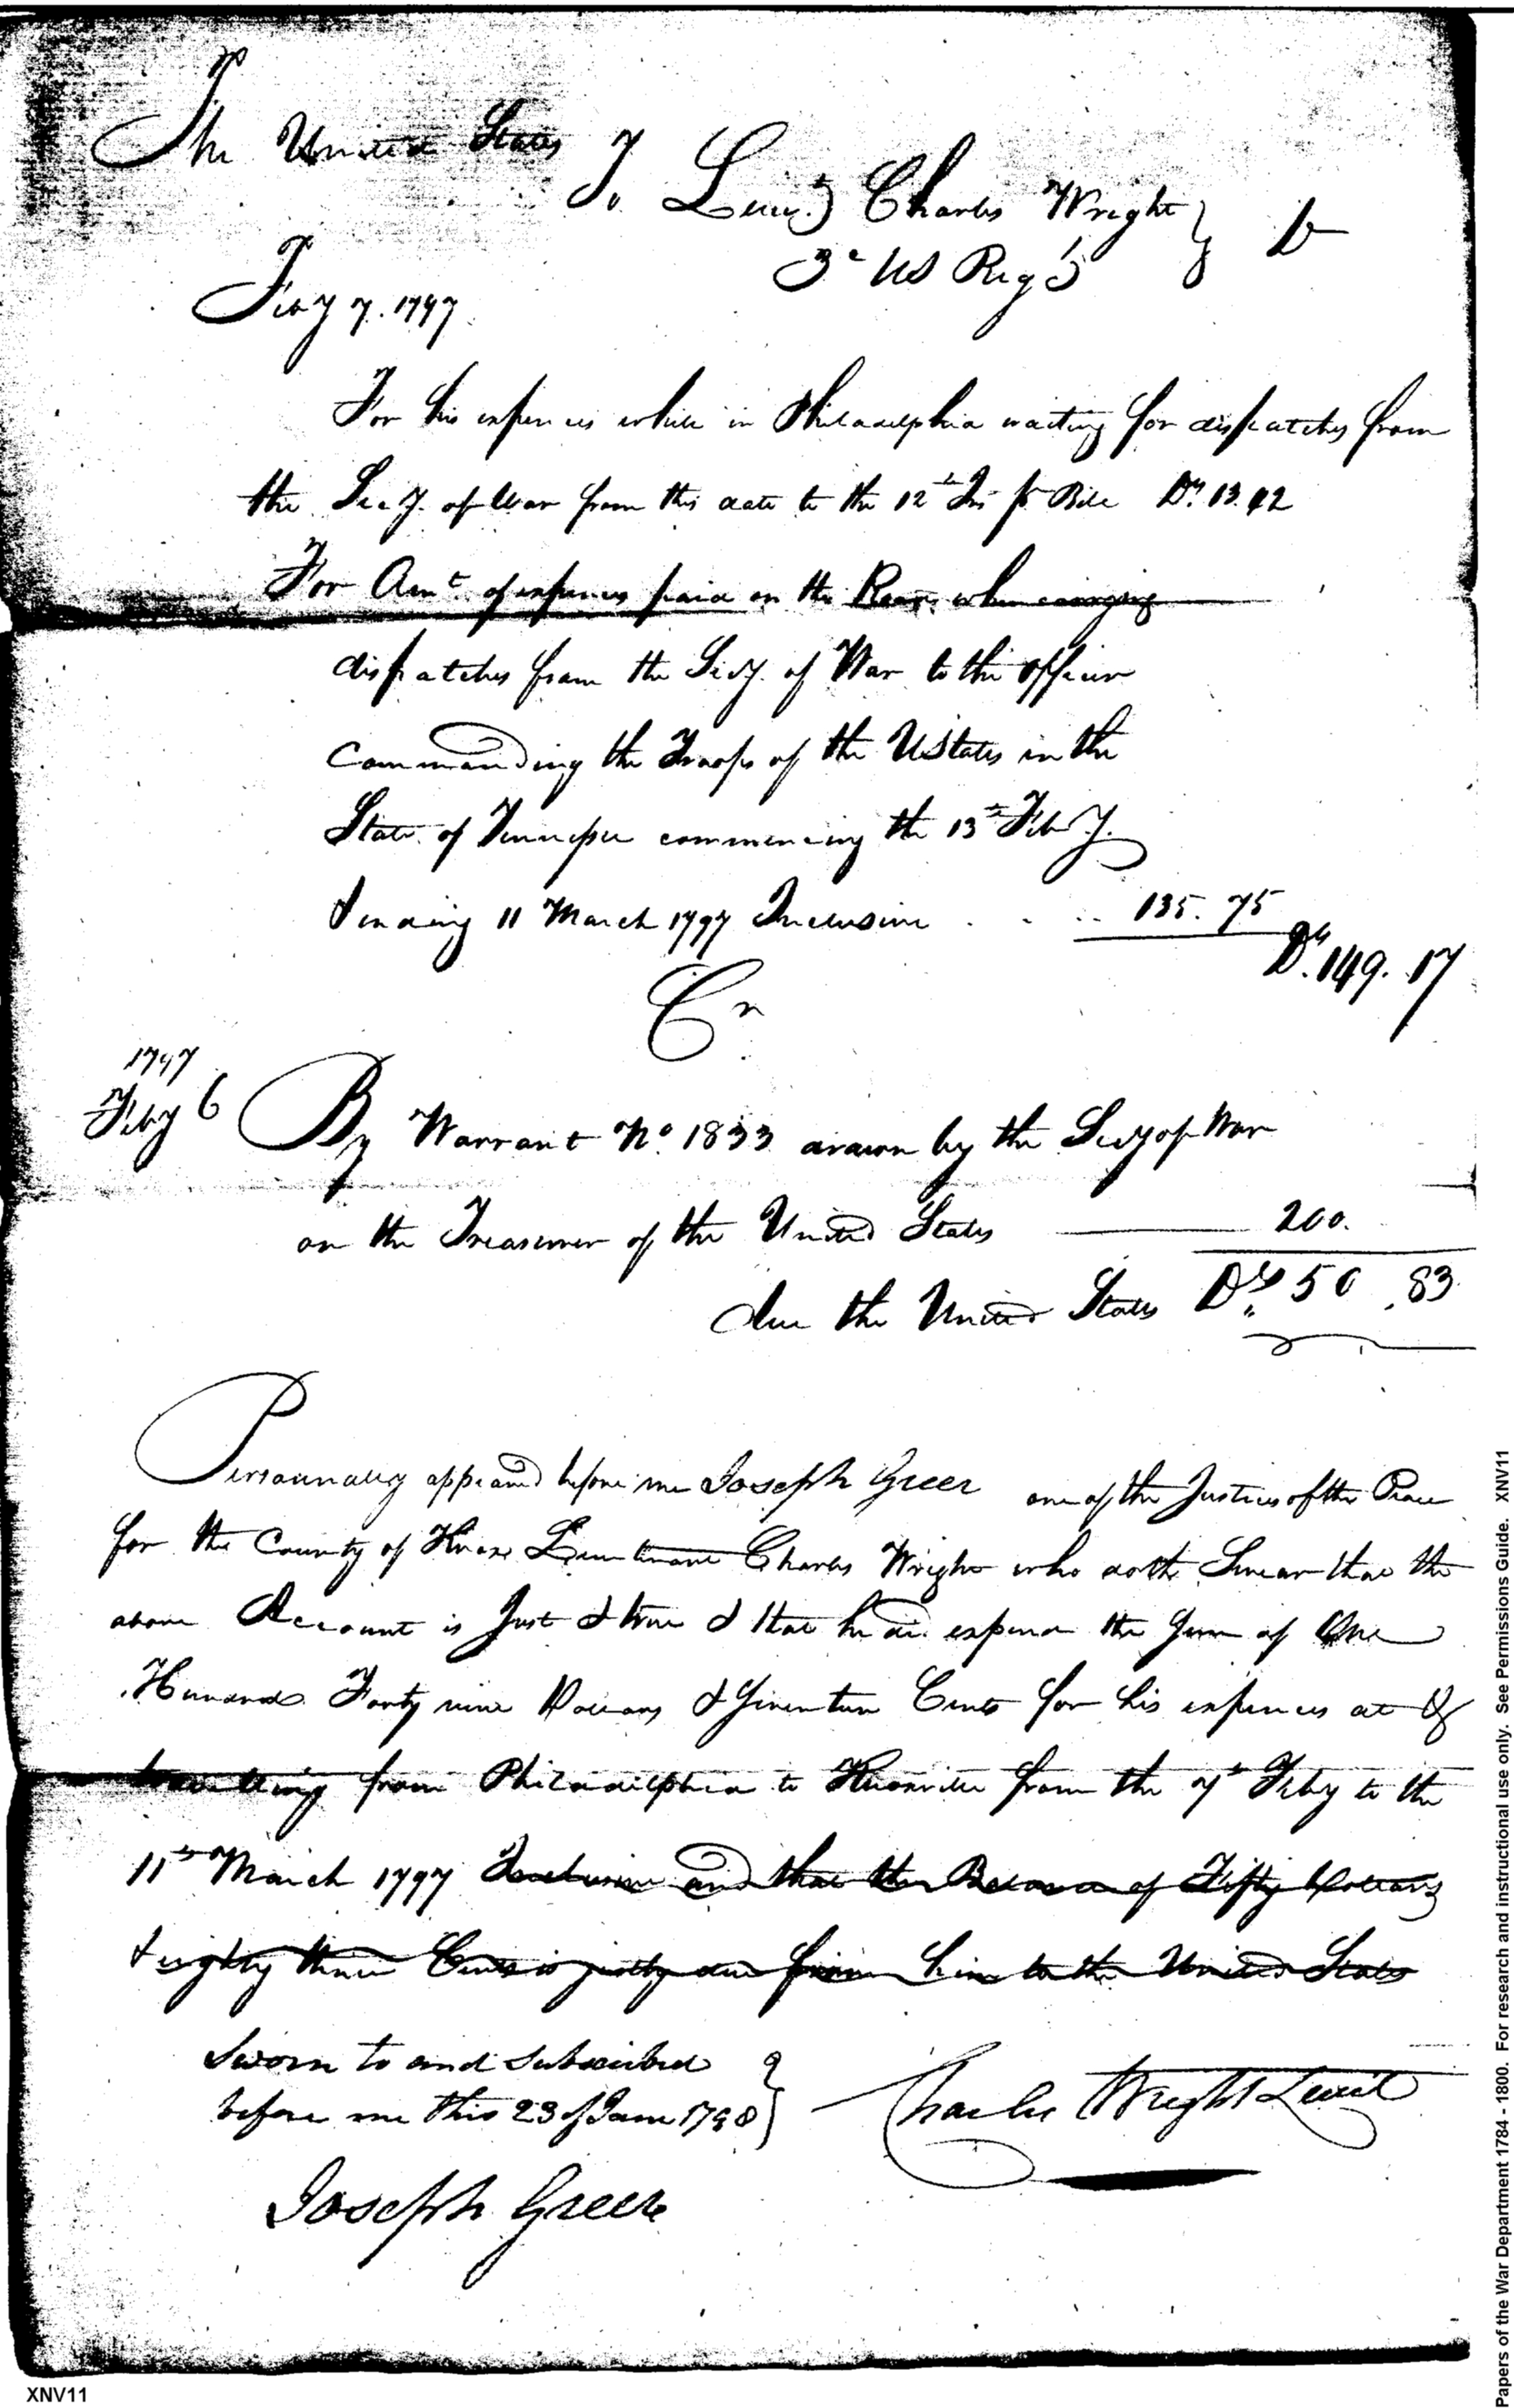 The United States
To Lieut Charles Wright } Dr
3d US Regt
Feby 7. 1797
For his expences while in Philadelphia waiting for dispatches from
the Secy. of War from this date to the 12th Ins pr Bill Drs. 13.42
For Amt. of expences paid on the Road, when carrying
dispatches from the Secy. of War to the officer
Commanding the Troops of the UStates in the
State of Tennessee commencing the 13th Feby.
& ending 11 March 1797 Inclusive . . .. 135. 75
Drs. 149. 17
Cr
1797
Feby 6 By Warrant No. 1833 drawn by the Secy of War
on the Treasurer of the United States 200.
due the United States Drs 50 .83
Personnally appeared before me Joseph Greer one of the Justices of the Peace
for the County of Knox Lieutenant Charles Wright who doth Swear that the
above Account is Just & true & that he did expend the Sum of One
Hundred Forty nine Dollars & Seventeen Cents for his expences at &
travelling from Philadelphia to Knoxville from the 7th Feby to the
11th March 1797 Inclusive and that the Balance of Fifty Dollars
& eighty three Cents is justly due from him to the United States
Sworn to and subscribed }
before me this 23 of Jam 1798 } Charles Wright Lieut
Joseph Greer
XNV11
Papers of the War Department 1784 - 1800. For research and instructional use only. See Permissions Guide. XNV11